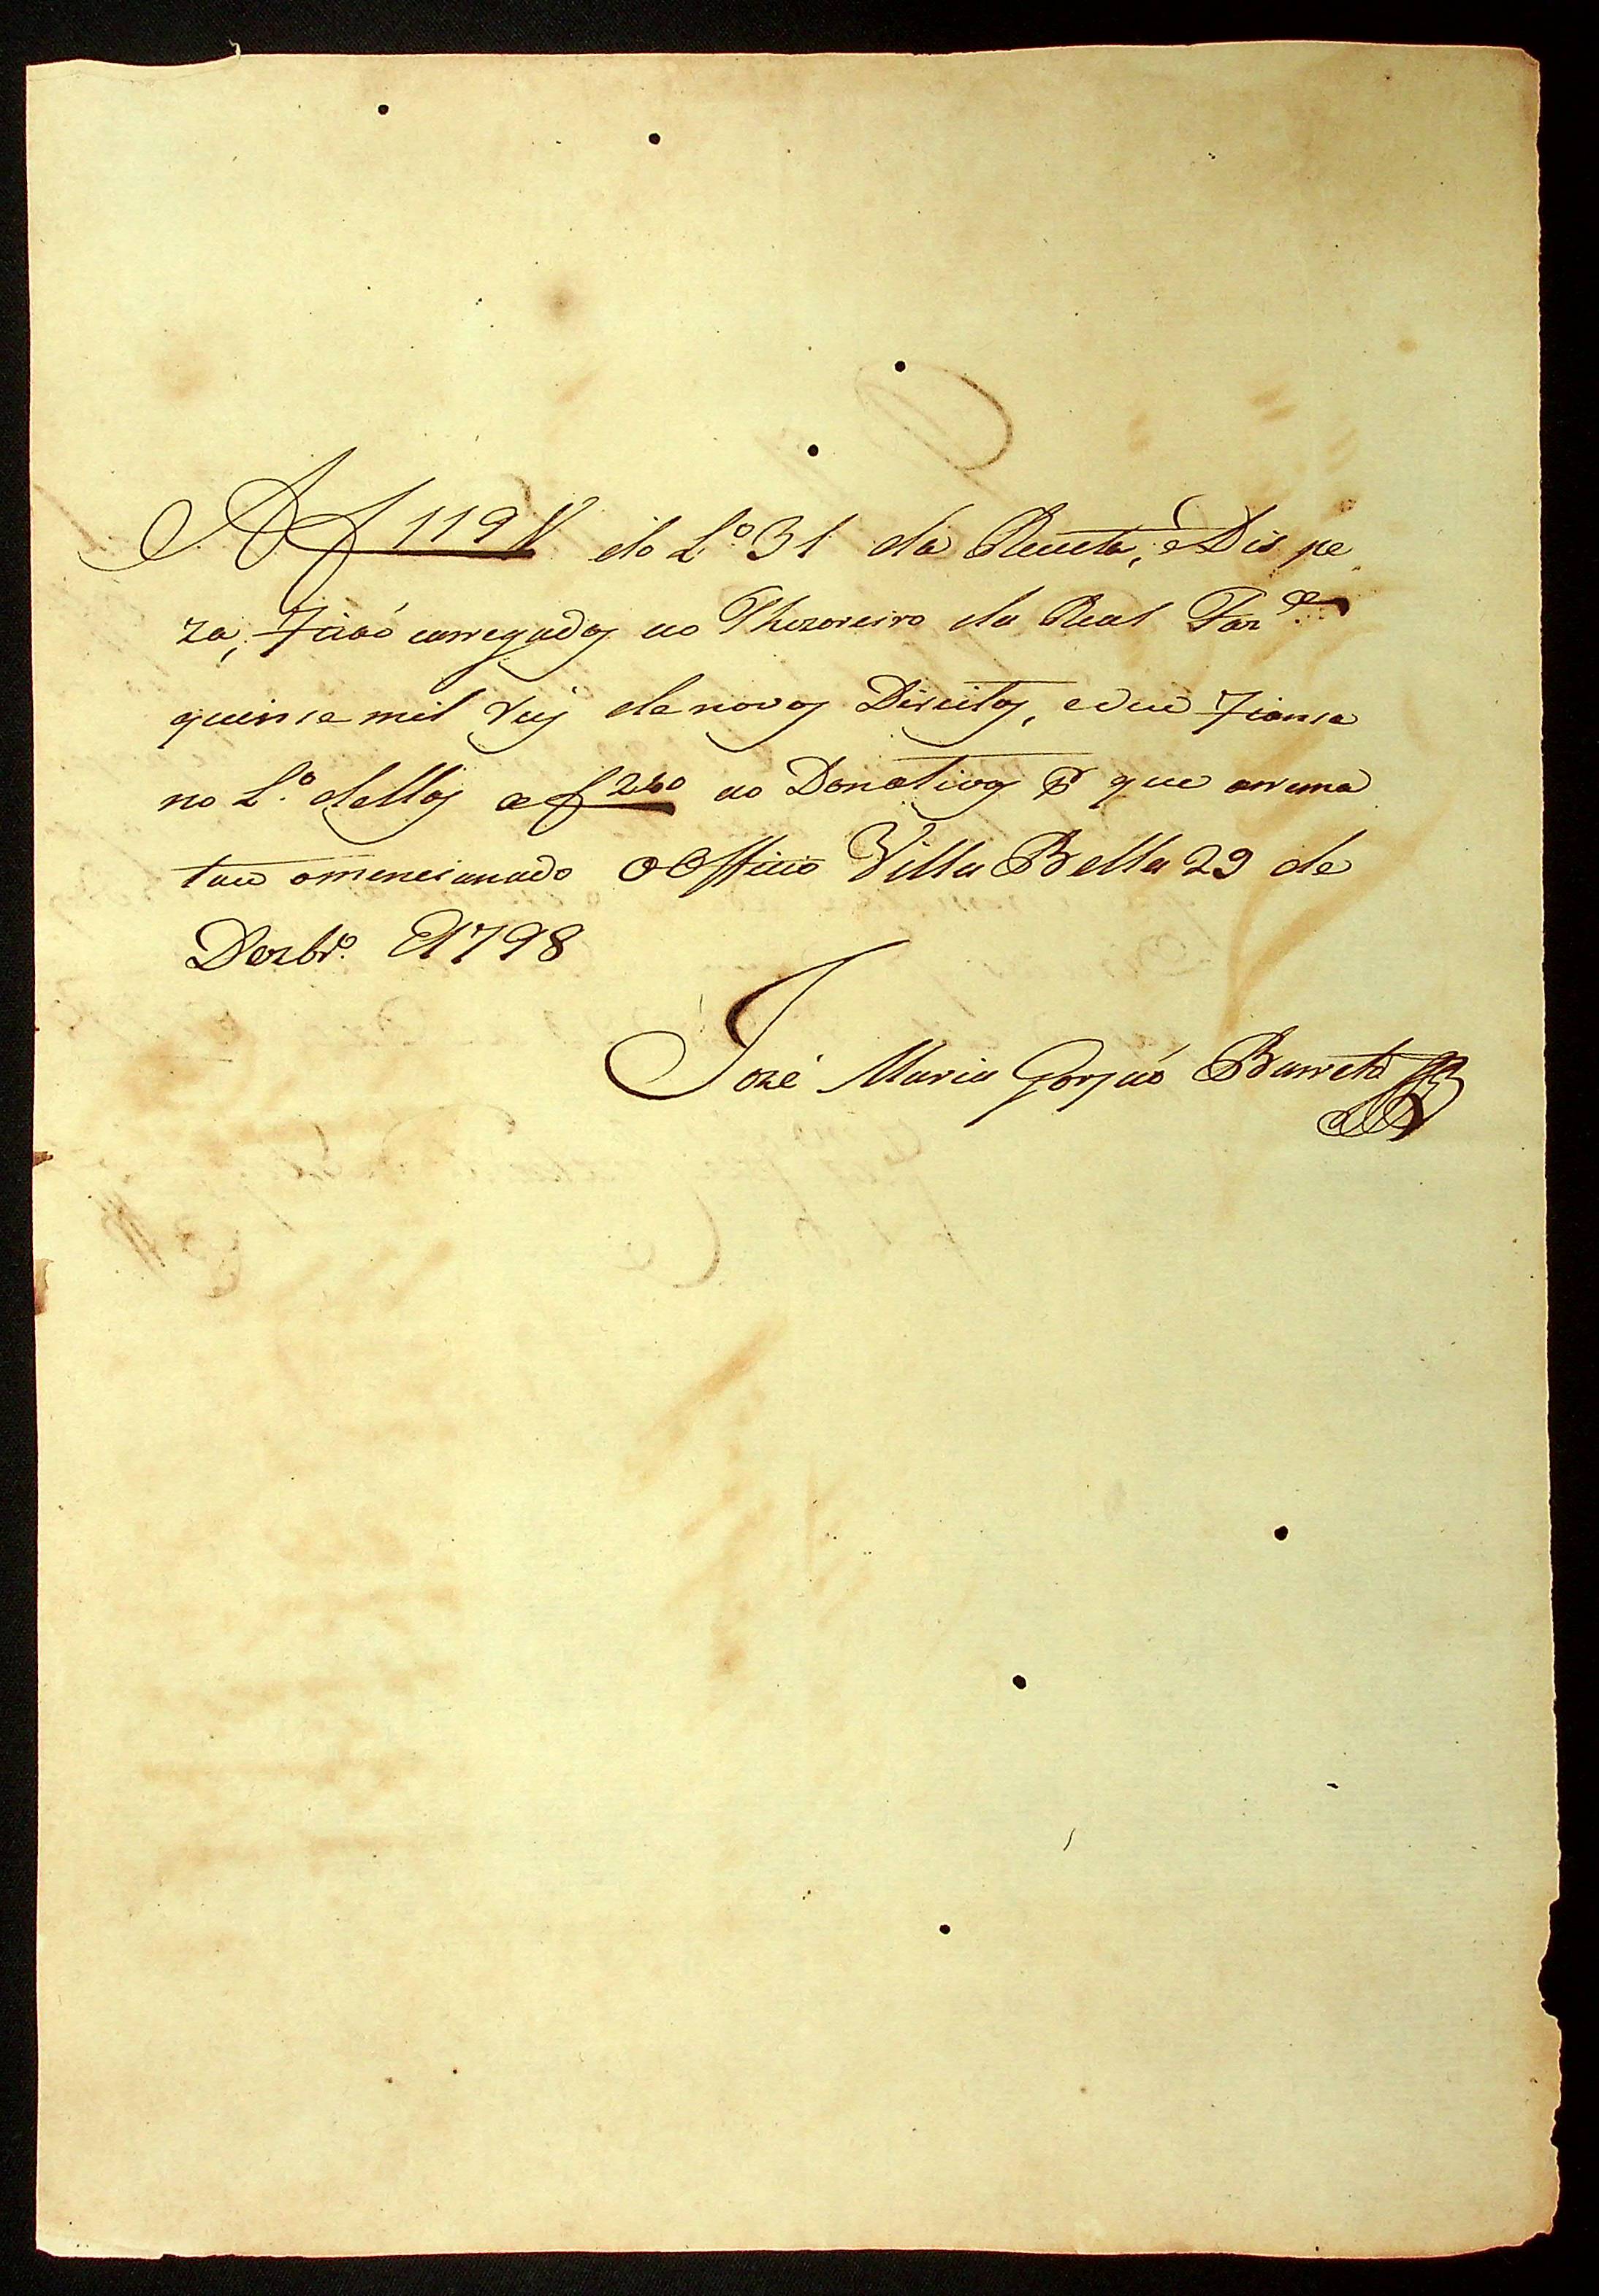 A f 119 V do L.º 31 da Receita, e Dispe
za, ficaõ carregados ao Thezoreiro da Real Faz.da
quinse mil reis de novos Direitos, e deu fiansa
no L.º delles a f 260 ao Donativos p que arema
tou o mencionado Officio Villa Bella 29 de
Dezbr.º 1798
José Maria Gorjaõ Barreto